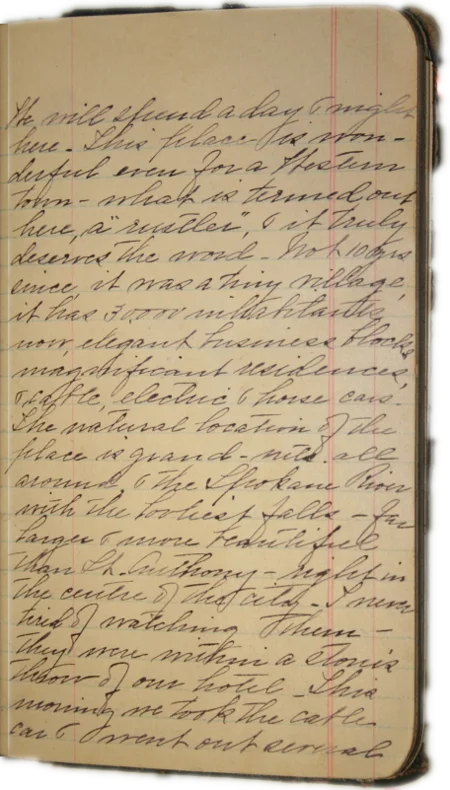 We will spend a day & night
here - This place is won-
derful even for a Western
town - what is termed out
here, a "rustler", & it truly
deserves the word - Not 10 yrs
since, it was a tiny village,
it has 30000 inhabitants
now, elegant business blocks,
magnificant residences,
& cable, electric & horse cars -
The natural location of the
place is grand - mts. all
around & the Spokane River
with the loveliest falls - far
larger & more beautiful
than St. Anthony - right in
the centre of the city - I never
tired of watching them -
they were within a stone's
throw of our hotel - This
morning we took the cable
car & went out several